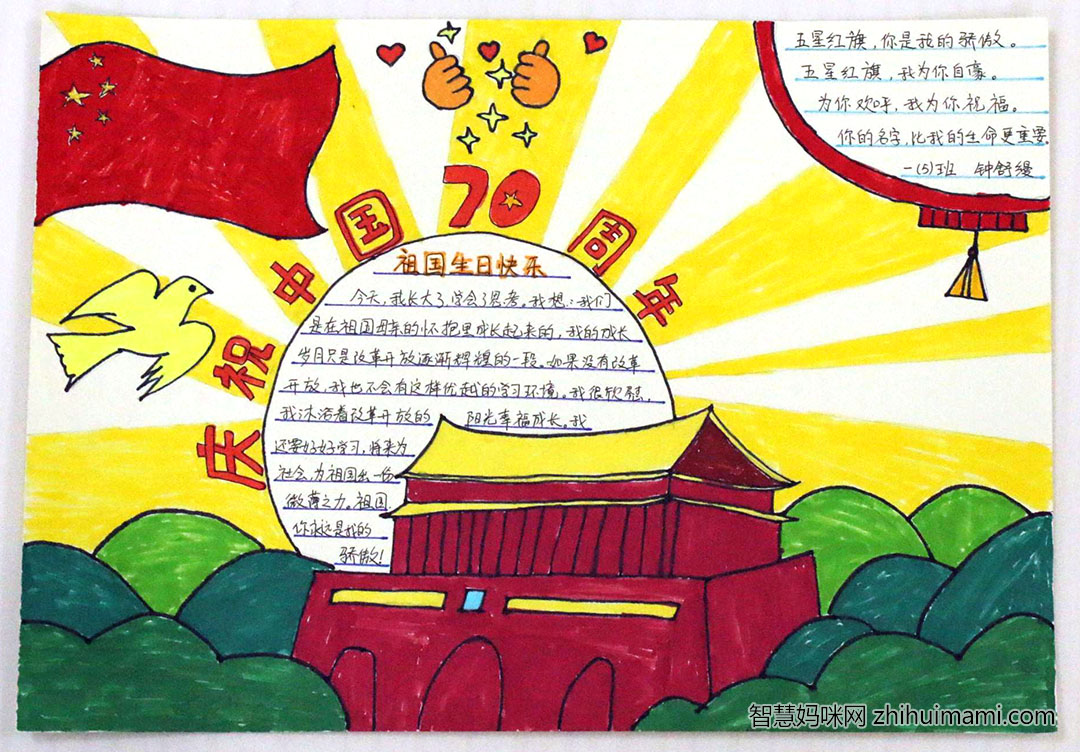 庆祝中国70周年
五星红旗，你是我的骄傲。
五星红旗，我为你自豪。
为你欢呼，我为你祝福。
你的名字，比我的生命更重要
一(5)班 钟舒缦
祖国生日快乐
今天，我长大了，学会了思考。我想：我们
是在祖国母亲的怀抱里成长起来的，我的成长
岁月只是改革开放逐渐辉煌的一段。如果没有改革
开放，我也不会有这样优越的学习环境。我很欣慰，
我沐浴着改革开放的 阳光幸福成长。我
还要好好学习，将来为
社会，为祖国出一份
微薄之力。祖国，
你永远是我的
骄傲！
智慧妈咪网 zhihuimami.com